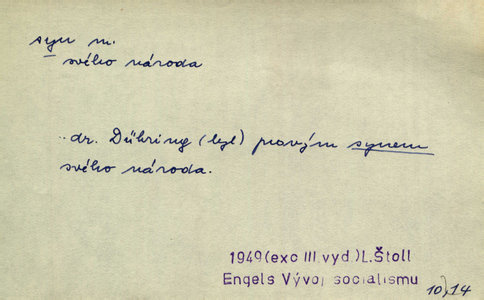 syn m.
svého národa
..dr. Dühring (byl) pravým synem
svého národa.
1949(exc III.vyd.)L.Štoll
Engels Vývoj socialismu 10,14